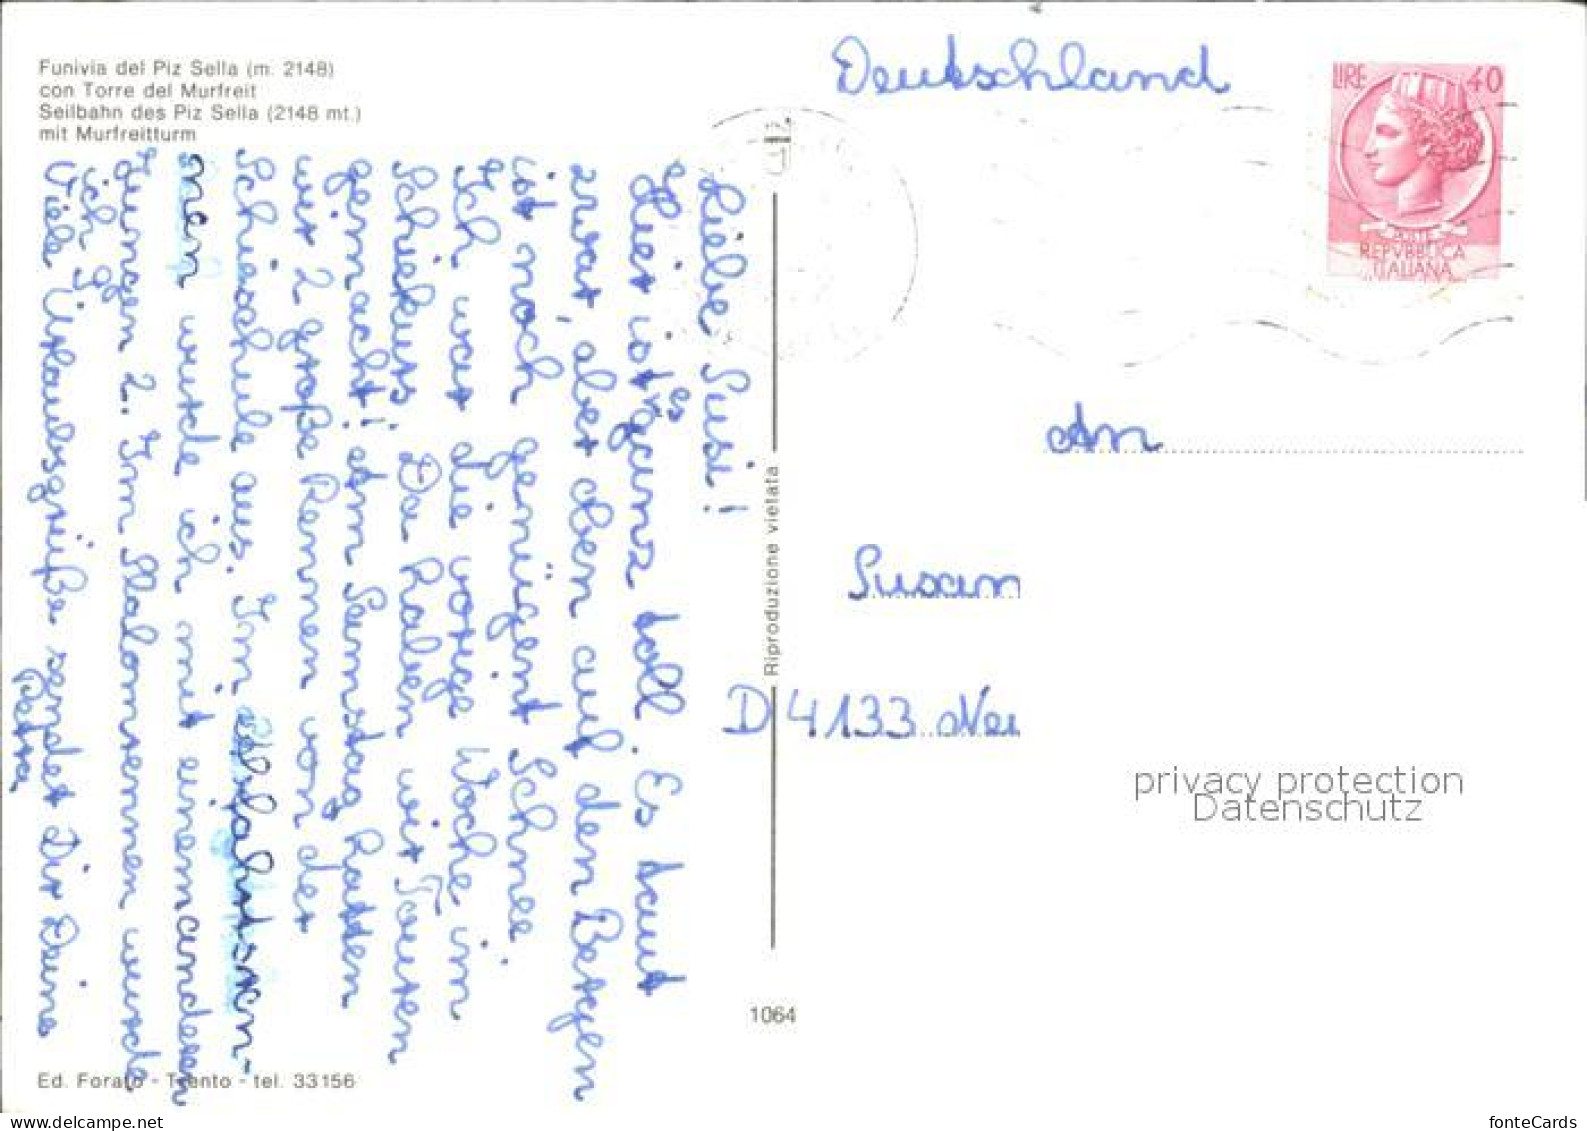 Funivia del Piz Sella (m. 2148)
con Torre del Murfreit
Seilbahn des Piz Sella (2148 mt.)
mit Murfreitturm
Deutschland
LIRE 40
POSTE
REPVBBLICA
ITALIANA
Liebe Susi!
Hier ist es ganz toll. Es taut
zwar, aber oben auf den Bergen
ist noch genügent Schnee.
Ich war die vorige Woche im
Schiekurs. Da haben wir Touren
gemacht! Am Samstag hatten
wir 2 große Rennen von der
Schieschule aus. Im Abfahrtsren-
nen wurde ich mit einem anderen
Jungen 2. Im Slalomrennen wurde
ich 9.
Viele Urlaubsgrüße sendet Dir Deine
Petra
Riproduzione vietata
An
Susan
D 4133 Neu
privacy protection
Datenschutz
1064
Ed. Forato - Trento - tel. 33156
delcampe.net
fonteCards